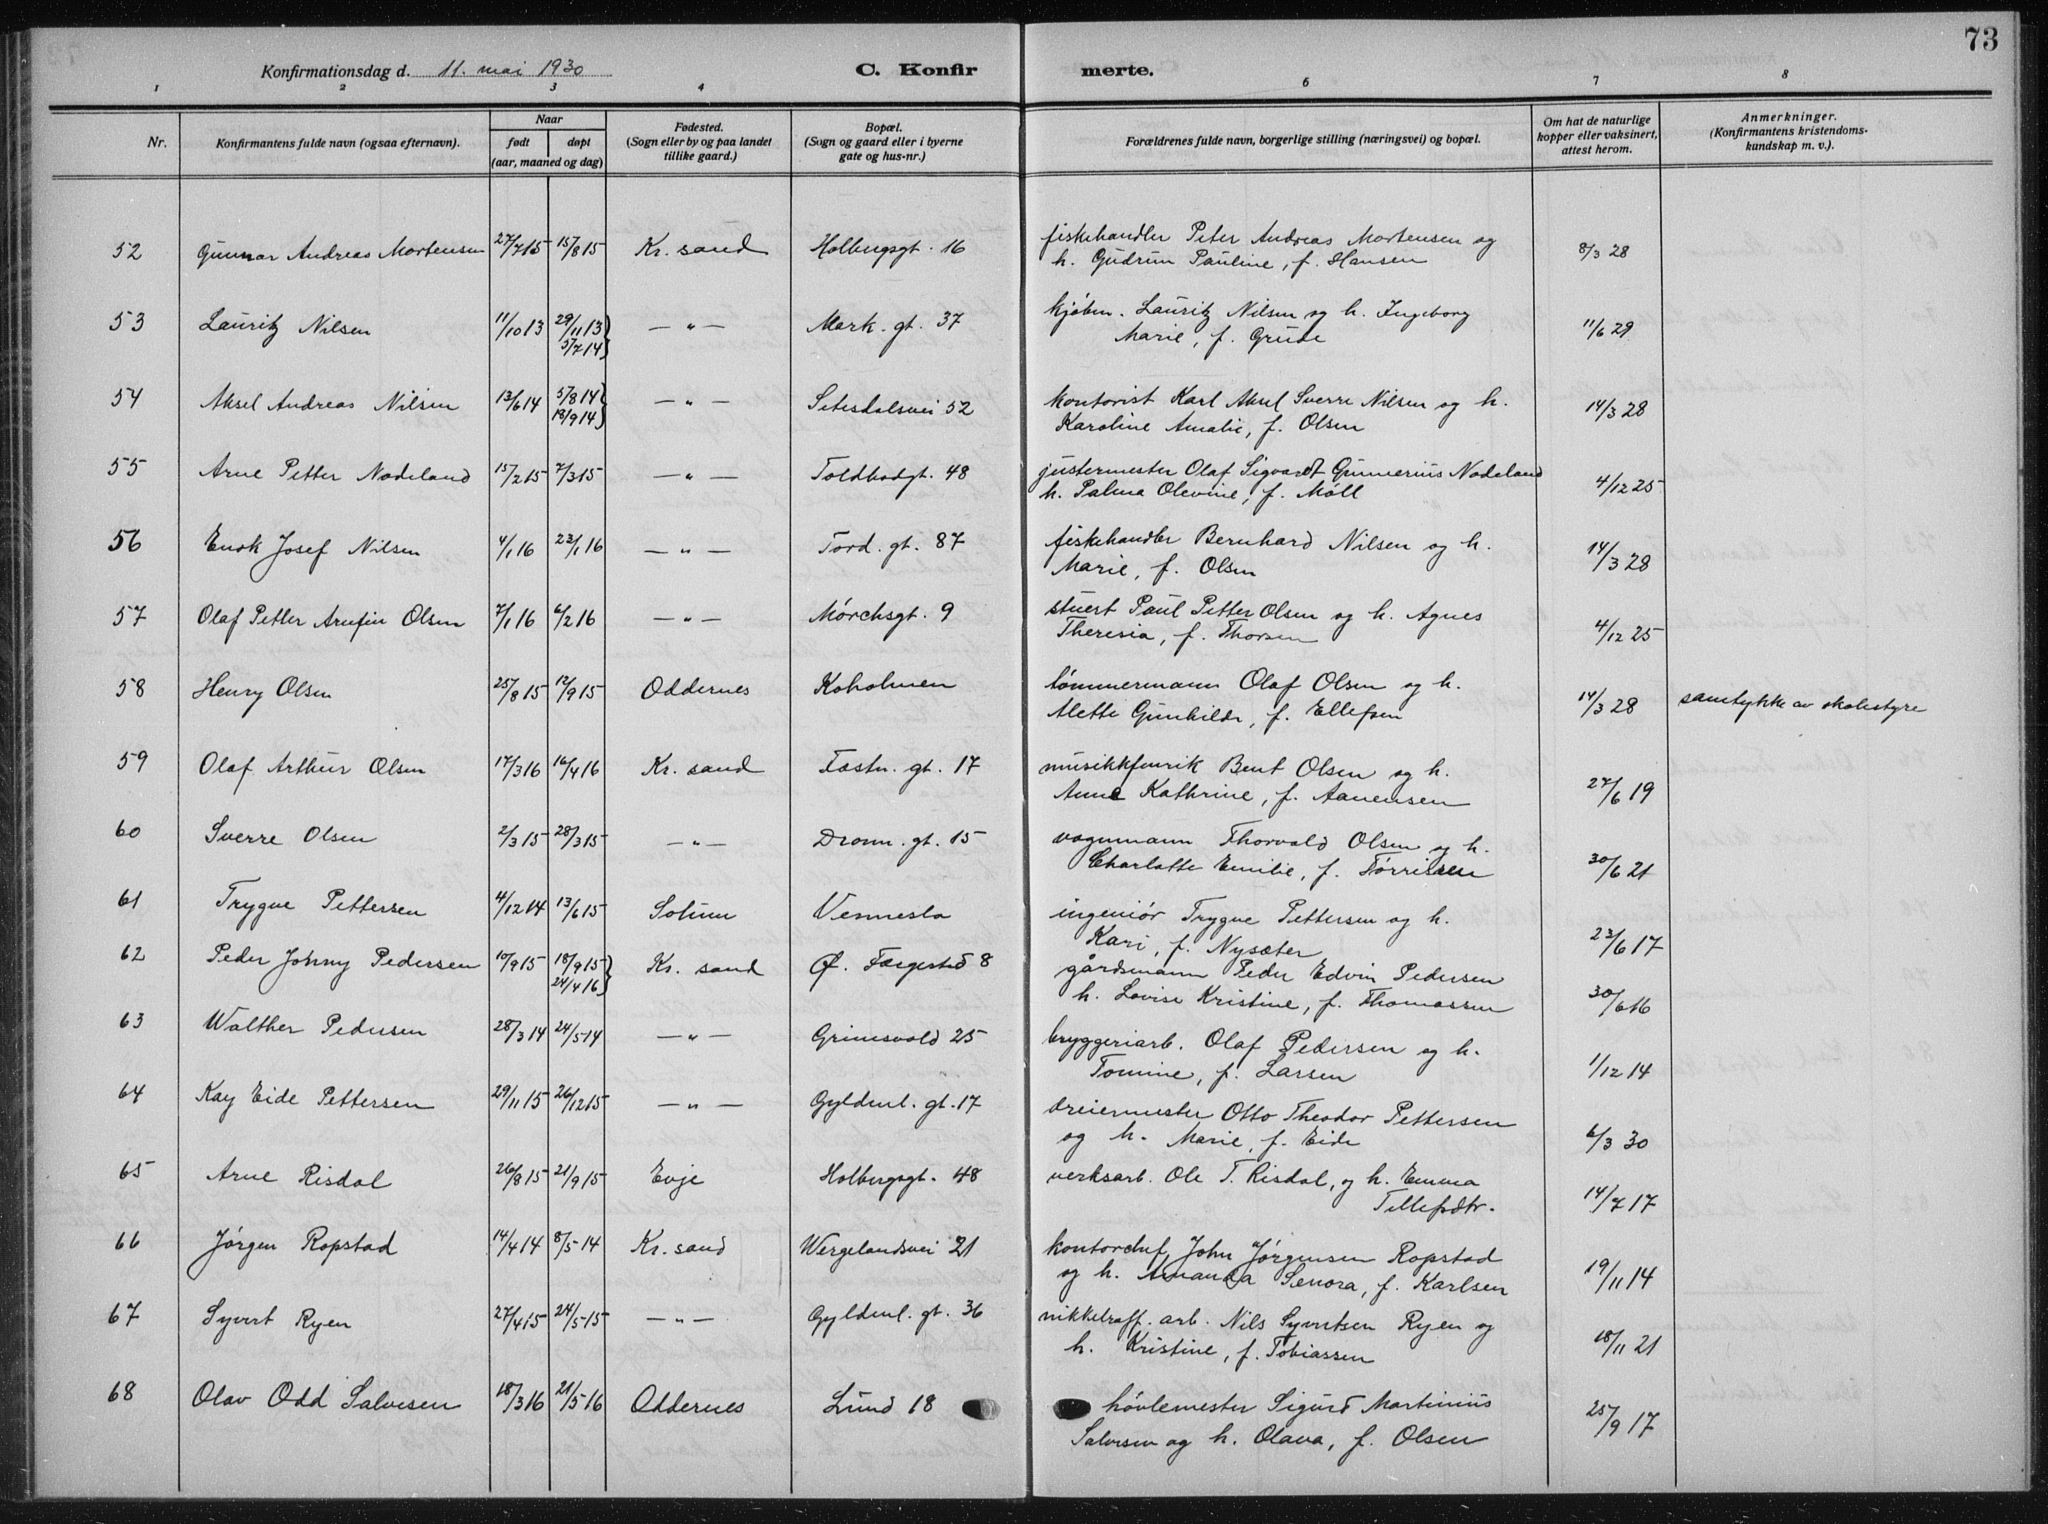 73
Konfirmationsdag d. 11. mai 1930 C. Konfirmerte.
1 2 3 4 6 7 8
Nr.
Konfirmantens fulde navn (ogsaa efternavn).
Naar
født
døpt
(aar, maaned og dag)
Fødested.
(Sogn eller by og paa landet
tillike gaard.)
Bopæl.
(Sogn og gaard eller i byerne
gate og hus-nr.)
Forældrenes fulde navn, borgerlige stilling (næringsvei) og bopæl.
Om hat de naturlige
kopper eller vaksinert,
attest herom.
Anmerkninger.
(Konfirmantens kristendoms-
kundskap m. v.).
52 Gunnar Andreas Mortensen 27/7 15 15/8 15 Kr. sand Holbergsgt. 16 fiskehandler Peter Andreas Mortensen og 8/3 28
h. Gudrun Pauline, f. Hansen
53 Lauritz Nilsen 11/10 13 29/11 13 } —„— Mark. gt. 37 kjøbm. Lauritz Nilsen og h. Ingeborg 11/6 29
5/7 14 } Marie, f. Grude
54 Aksel Andreas Nilsen 13/6 14 5/8 14 } —„— Setesdalsvei 52 kontorist Karl Aksel Sverre Nilsen og h. 14/3 28
13/9 14 } Karoline Amalie, f. Olsen
55 Arne Petter Nodeland 15/2 15 7/3 15 —„— Toldbodgt. 48 justermester Olaf Sigvardt Gunnerius Nodeland 4/12 25
h. Palma Olevine, f. Móll
56 Enok Josef Nilsen 4/1 16 23/1 16 —„— Tord. gt. 87 fiskehandler Bernhard Nilsen og h. 14/3 28
Marie, f. Olsen
57 Olaf Petter Arnfin Olsen 7/1 16 6/2 16 —„— Mórchsgt. 9 stuert Paul Petter Olsen og h. Agnes 4/12 25
Theresia, f. Thorsen
58 Henry Olsen 25/8 15 12/9 15 Oddernes Koholmen tómmermann Olaf Olsen og h. 14/3 28 samtykke av skolestyre
Alette Gunhilde, f. Ellefsen
59 Olaf Arthur Olsen 17/3 16 16/4 16 Kr. sand Fæstn. gt. 17 musikkfenrik Bent Olsen og h. 27/6 19
Anne Kathrine, f. Aanensen
60 Sverre Olsen 2/3 15 28/3 15 —„— Dronn. gt. 15 vognmann Thorvald Olsen og h. 30/6 21
Charlotte Emilie, f. Tørrisen
61 Trygve Pettersen 4/12 14 13/6 15 Solum Vennesla ingeniór Trygve Pettersen og h. 23/6 17
Kari, f. Nysæter
62 Peder Johnny Pedersen 10/9 15 18/9 15 } Kr. sand Ø. Færgested 8 gårdsmann Peder Edvin Pedersen 30/6 16
24/4 16 } h. Lovise Kristine, f. Thomassen
63 Walther Pedersen 28/3 14 24/5 14 —„— Grimsvold 25 bryggeriarb. Olaf Pedersen og h. 1/12 14
Tomine, f. Larsen
64 Kay Eide Pettersen 29/11 15 26/12 15 —„— Gyldenl. gt. 17 dreiermester Otto Theodor Pettersen 6/3 30
og h. Marie, f. Eide
65 Arne Risdal 26/8 15 21/9 15 Evje Holbergsgt. 48 verksarb. Ole T. Risdal, og h. Emma 14/7 17
Tellefsdtr.
66 Jórgen Ropstad 14/4 14 8/5 14 Kr. sand Wergelandsvei 21 kontorchef John Jórgensen Ropstad 19/11 14
og h. Amanda Senora, f. Karlsen
67 Syvert Ryen 27/4 15 24/5 15 —„— Gyldenl. gt. 36 nikkelraff. arb. Nils Syvertsen Ryen og 18/11 21
h. Kristine, f. Tobiassen
68 Olav Odd Salvesen 18/3 16 21/5 16 Oddernes Lund 18 hóvlemester Sigurd Martinius 25/9 17
Salvesen og h. Olava, f. Olsen